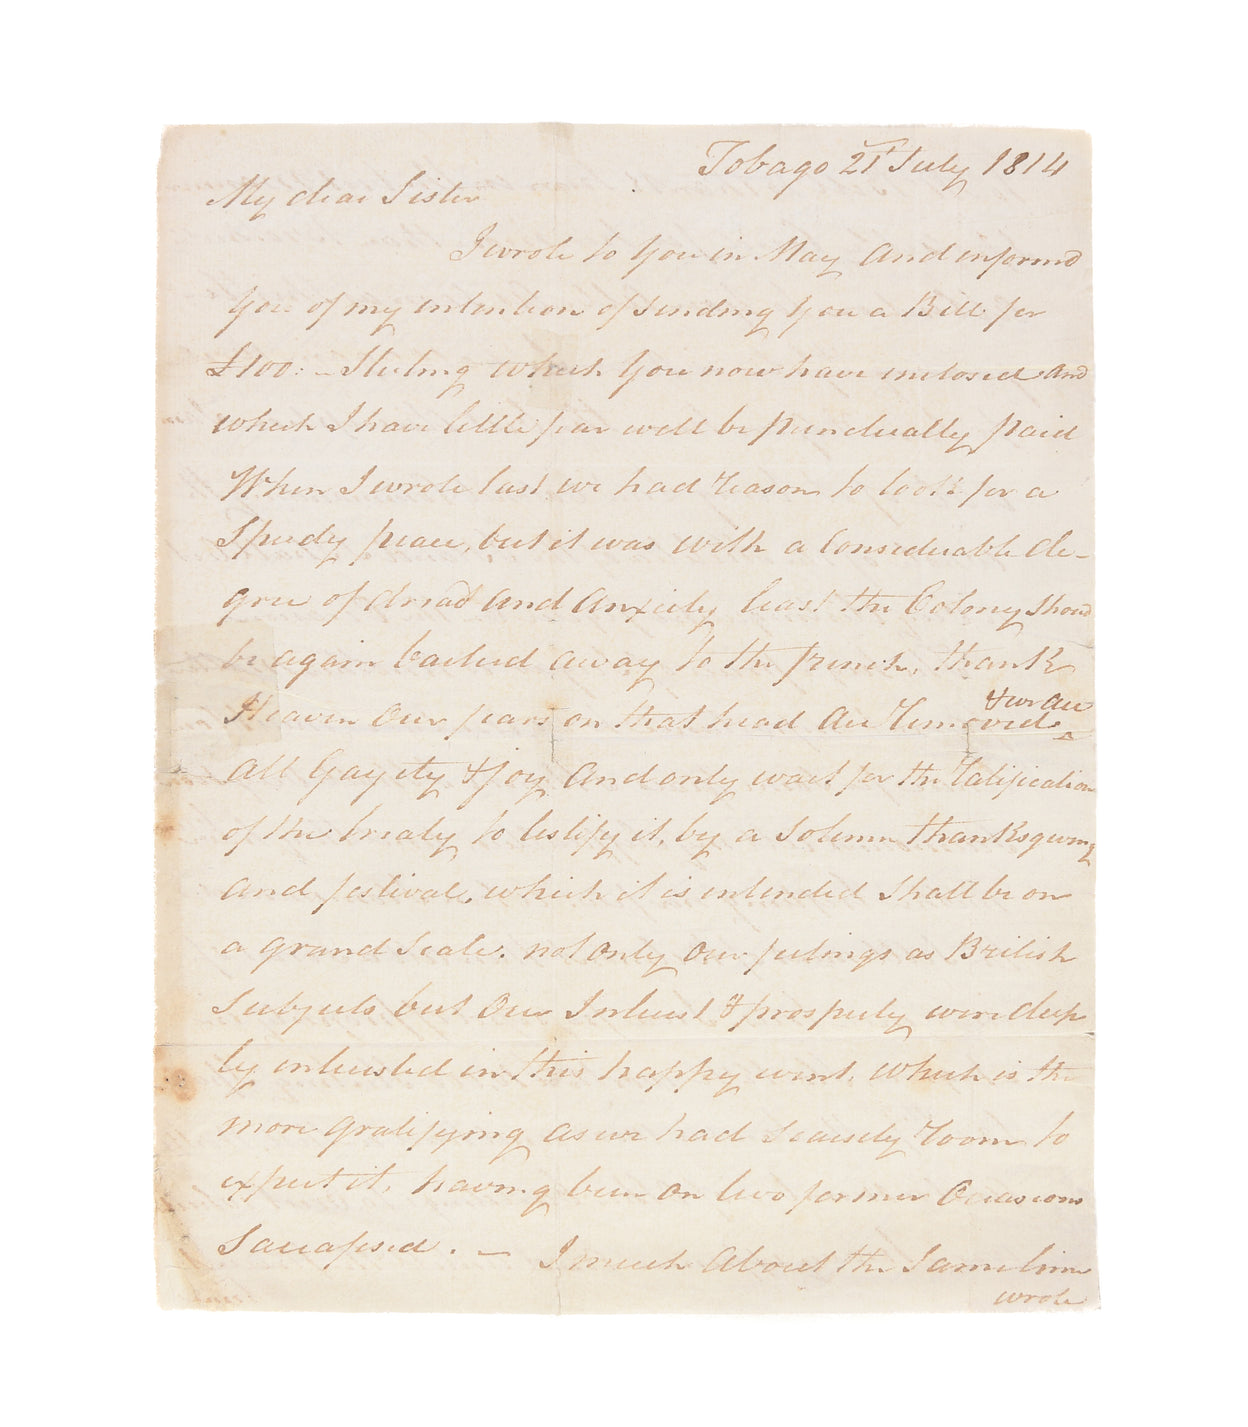 Tobago 21st July 1814
My dear Sister
I wrote to you in May and inform'd
you of my intention of sending you a Bill for
£100:- Sterling which you now have inclosed and
which I have little fear will be punctually paid
When I wrote last we had reason to look for a
Speedy peace, but it was with a Considerable de-
gree of dread and anxiety least the Colony shoud
be again barterd away to the french, thank
Heaven our fears on that head are removed & we are
all Gayety & joy and only wait for the ratification
of the treaty to testify it, by a solemn thanksgiving
and festival, which it is intended shall be on
a grand scale. not only our feelings as British
Subjects but our Interest & prosperity were deep
ly interested in this happy event, which is the
more gratifying as we had scarsely room to
expect it, having been on two former Occasions
Sacrafised. — I much about the same time
wrote